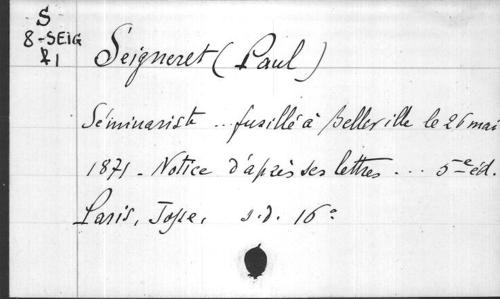 S
8-SEIG
R1
Seigneret (Paul)
Séminariste .. fusillé à Belleville le 26 mai
1871 - Notice d'après ses lettres ... 5e éd.
Paris, Jose, s.d. 16°